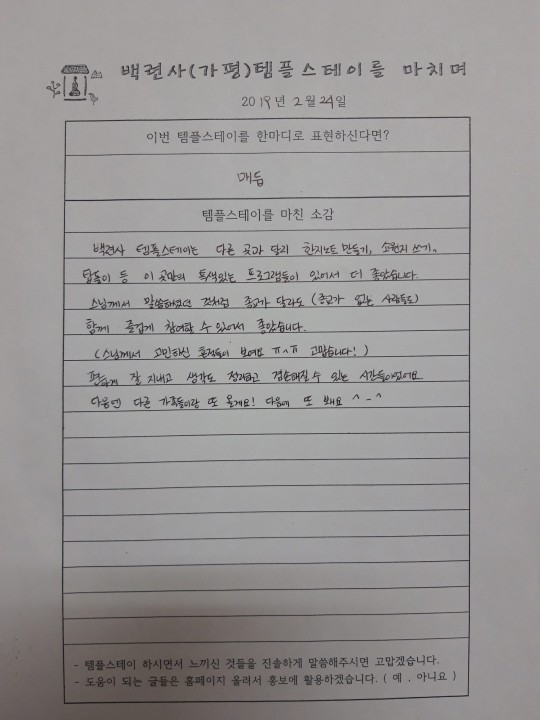 백련사(가평)템플스테이를 마치며
2019년 2월 24일
이번 템플스테이를 한마디로 표현하신다면?
매듭
템플스테이를 마친 소감
백련사 템플스테이는 다른 곳과 달리 한지노트 만들기, 소원지 쓰기,
탑돌이 등 이 곳만의 특색있는 프로그램들이 있어서 더 좋았습니다.
스님께서 말씀하셨던 것처럼 종교가 달라도 (종교가 없는 사람들도)
함께 즐겁게 참여할 수 있어서 좋았습니다.
(스님께서 고민하신 흔적들이 보여요 ㅠ^ㅠ 고맙습니다!)
편하게 잘 지내고 생각도 정리하고 겸손해질 수 있는 시간들이었어요
다음엔 다른 가족들이랑 또 올게요! 다음에 또 봬요 ^-^
- 템플스테이 하시면서 느끼신 것들을 진솔하게 말씀해주시면 고맙겠습니다.
- 도움이 되는 글들은 홈페이지 올려서 홍보에 활용하겠습니다. ( 예 , 아니요 )